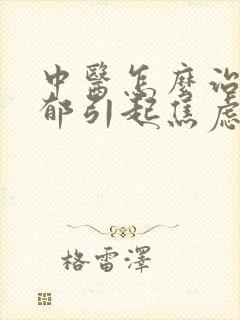 中醫怎麼治
郁引起焦虑
格雷澤